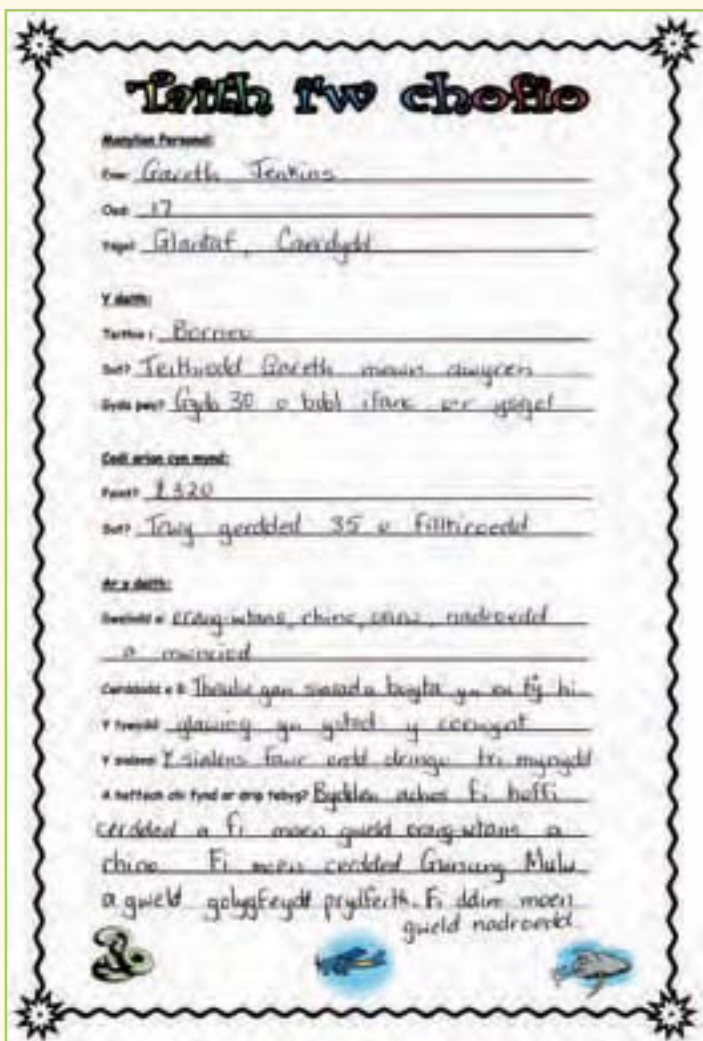 Taith i'w chofio
Manylion Personol:
Enw: Gareth Jenkins
Oed: 17
Ysgol: Glantaf, Caerdydd
Y daith:
Teithio i: Borneo
Sut? Teithiodd Gareth mewn awyren
Gyda pwy? Gyda 30 o bobl ifanc o'r ysgol
Codi arian cyn mynd:
Faint? £320
Sut? Trwy gerdded 35 o filltiroedd
Ar y daith:
Gwelodd e: orang-wtans, rhino, nadroedd
a mwnciod
Cwrddodd e â: Thoulu gan siarad a bwyta yn eu tŷ hi
Y tywydd: glawiog yn ystod y corwynt
Y sialens: Y sialens fawr oedd dringo tri mynydd
A hoffech chi fynd ar drip tebyg? Byddan achos fi hoffi
cerdded a fi moen gweld orang-wtans a
rhino. Fi moen cerdded Gunung Mulu
a gweld golygfeydd prydferth. Fi ddim moen
gweld nadroedd.